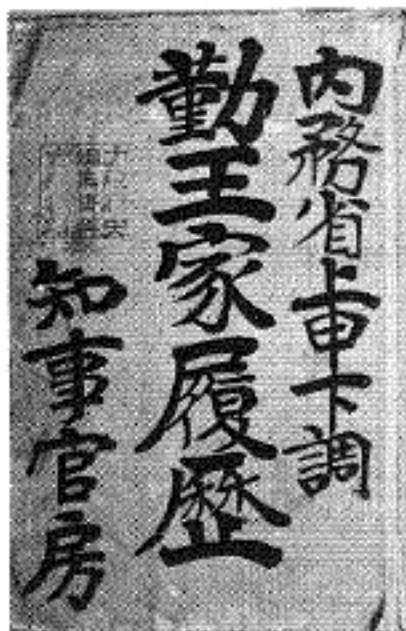 内務省上申下調
勤王家履歴
知事官房